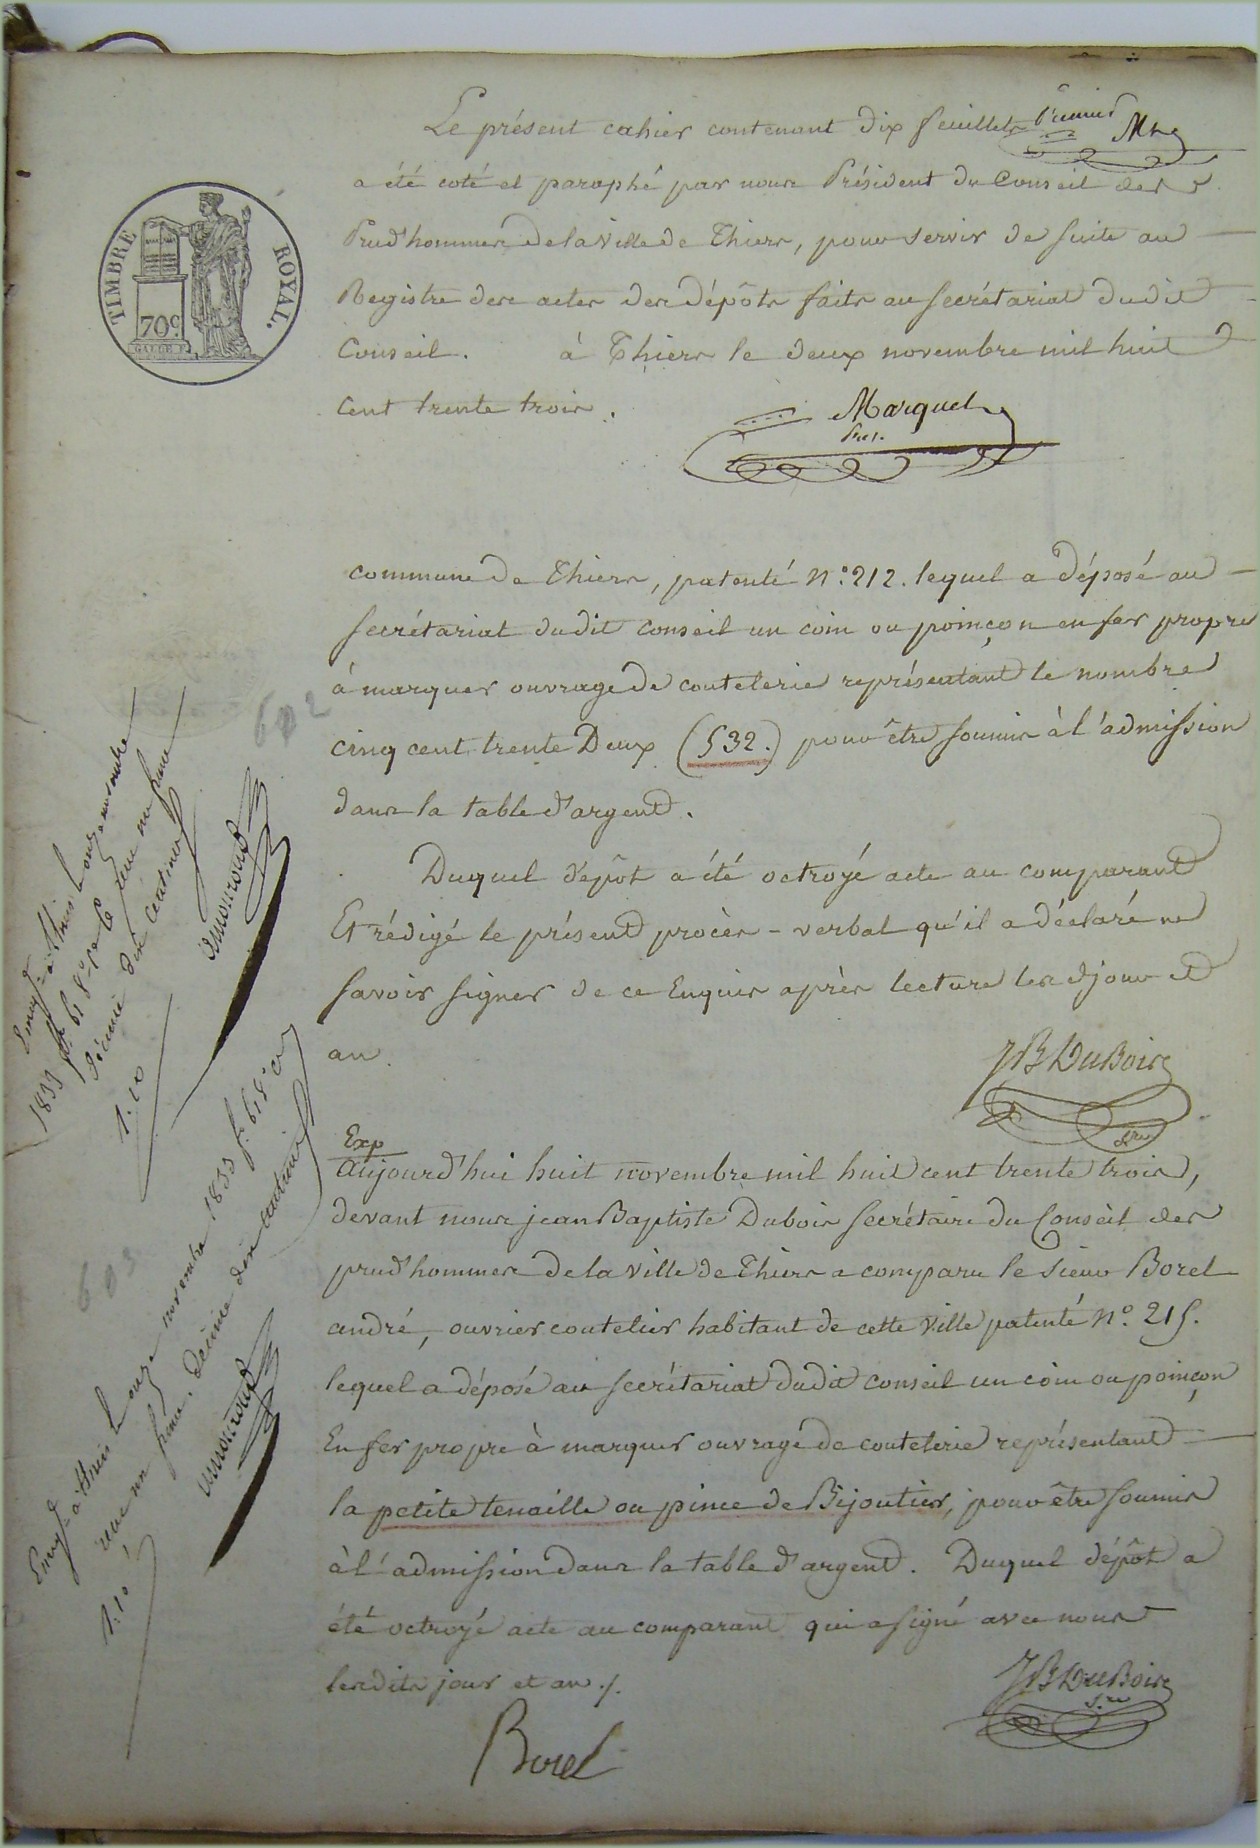 Premier
Le présent cahier contenant dix feuillets
a été coté et paraphé par nous Président du Conseil des
Prud'hommes de la Ville de Thiers, pour servir de suite au
Registre des actes des dépôts faits au secrétariat dudit
Conseil. à Thiers le deux novembre mil huit
cent trente trois.
Marquet
Pres.
TIMBRE ROYAL.
70c
commune de Thiers, patenté N.° 212. lequel a déposé au
secrétariat dudit conseil un coin ou poinçon en fer propre
à marquer ouvrage de coutelerie représentant le nombre
cinq cent trente Deux (532.) pour être soumis à l'admission
dans la table d'argent.
Duquel dépôt a été octroyé acte au comparant
Et rédigé le présent procès-verbal qu'il a déclaré ne
savoir signer de ce Enquis après lecture les d jour et
an
JB DuBois
Sre
Exp
aujourd'hui huit novembre mil huit cent trente trois,
devant nous jean Baptiste Dubois secrétaire du Conseil des
prud'hommes de la ville de Thiers a comparu le sieur Borel
andré, ouvrier coutelier habitant de cette Ville patenté N.° 215.
lequel a déposé au secrétariat dudit conseil un coin ou poinçon
En fer propre à marquer ouvrage de coutelerie représentant
la petite tenaille ou pince de Bijoutier, pour être soumis
à l'admission dans la table d'argent. Duquel dépôt a
été octroyé acte au comparant qui a signé avec nous
lesdits jour et an ./.
JB DuBois
S.re
Borel
602
à Thiers le onze novembre
1833 f.° 61 8.°
un franc
décime dix centimes
1.10
603
à Thiers le onze novembre 1833 f.° 61 8.°
un franc. décime dix centimes
1.10